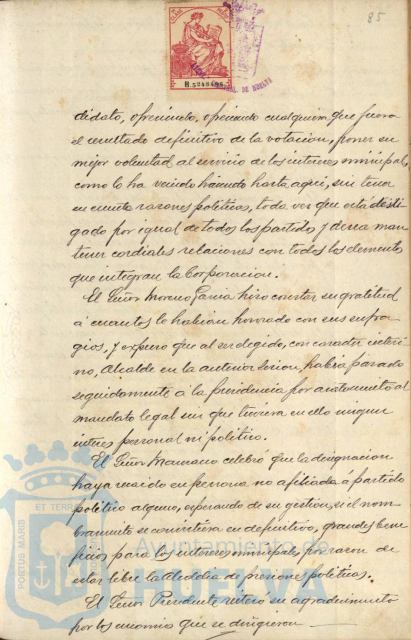 85
didato, ofreciendo, ofreciendo cualquiera que fuera
el resultado definitivo de la votacion, poner su
mejor voluntad al servicio de los intereses municipal,
como lo ha venido haciendo hasta aquí, sin tener
en cuenta razones politicas, toda vez que está desli-
gado por igual de todos los partidos y desea man-
tener cordiales relaciones con todos los elementos
que integran la Corporacion.
El Señor Moreno Garcia hizo constar su gratitud
á cuantos le habian honrado con sus sufra-
gios. y expuso que al ser elegido, con caracter interi-
no, Alcalde en la anterior sesion, habia pasado
seguidamente á la Presidencia por acatamiento al
mandato legal sin que tuviera en ello ningun
interes personal ni politico.
El Señor celebró que la designacion
haya recaido en persona no afiliada á partido
politico alguno, esperando de su gestion, si el nom-
bramiento se convirtiera en definitivo, grandes bene-
ficios para los intereses municipales por razon de
estar libre la Alcaldia de presiones politicas.
El Señor Presidente reiteró su agradecimiento
por los encomios que se dirigieron
ET TERRÆ
PORTUS MARIS
Ayuntamiento de
HUELVA